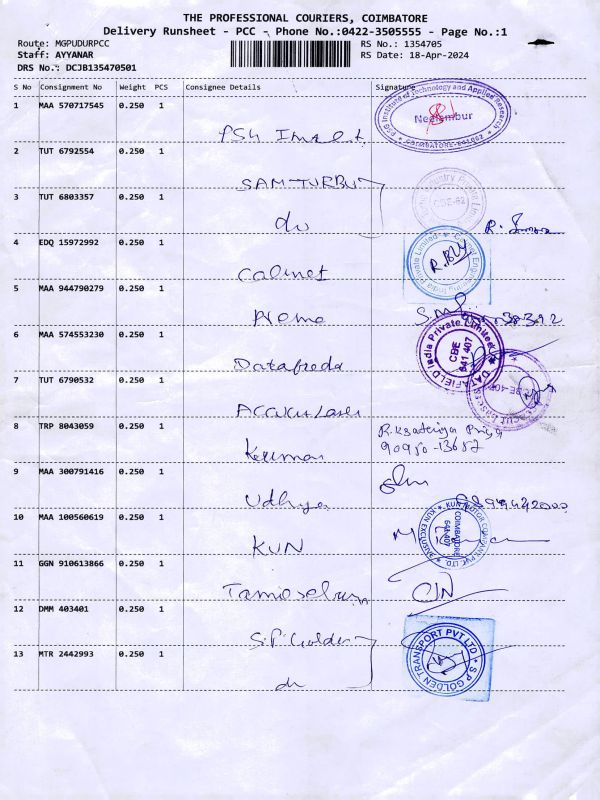 THE PROFESSIONAL COURIERS, COIMBATORE
Delivery Runsheet - PCC - Phone No.:0422-3505555 - Page No.:1
Route: MGPUDURPCC
RS No.: 1354705
Staff: AYYANAR
RS Date: 18-Apr-2024
DRS No.: DCJB135470501
S No Consignment No Weight PCS Consignee Details Signature
1 MAA 570717545 0.250 1
PSG Institute of Technology and Applied Research
Neelambur
COIMBATORE-641062
PSG
2 TUT 6792554 0.250 1
SAM-TURBU
3 TUT 6803357 0.250 1
do
R.
4 EDQ 15972992 0.250 1
Private Limited
Calinet
5 MAA 944790279 0.250 1
Home
6 MAA 574553230 0.250 1
DATAFIELD India Private Limited
CBE
641 407
Datafreda
7 TUT 6790532 0.250 1
Accucut Laser
8 TRP 8043059 0.250 1
R. Priya
90950-13652
Kumar
9 MAA 300791416 0.250 1
Udhya
10 MAA 100560619 0.250 1
KUN MOTOR COMPANY PVT. LTD.
KUN EXCLUSIVE
COIMBATORE
641 407
KUN
11 GGN 910613866 0.250 1
12 DMM 403401 0.250 1
S.P. Golden
13 MTR 2442993 0.250 1
S P GOLDEN TRANSPORT PVT LTD
do